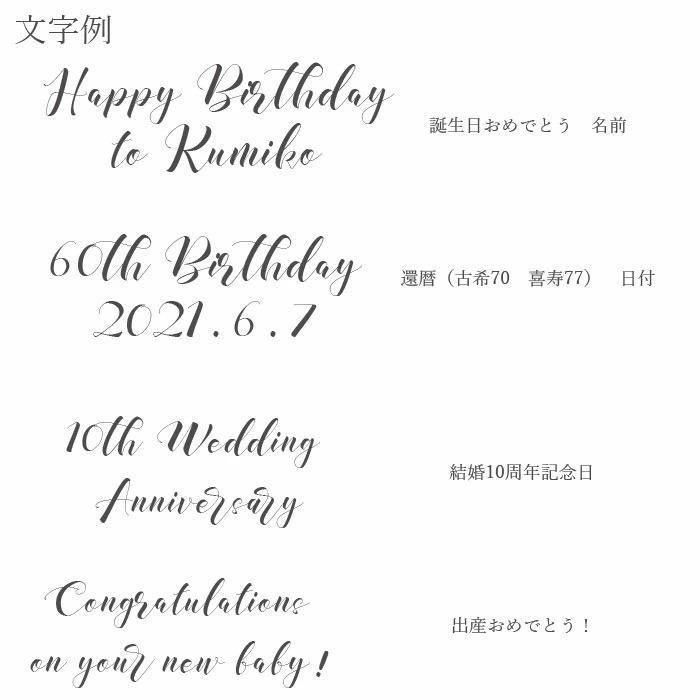 文字例
Happy Birthday
to Kumiko
誕生日おめでとう　名前
60th Birthday
2021.6.7
還暦（古希70　喜寿77）　日付
10th Wedding
Anniversary
結婚10周年記念日
Congratulations
on your new baby!
出産おめでとう！